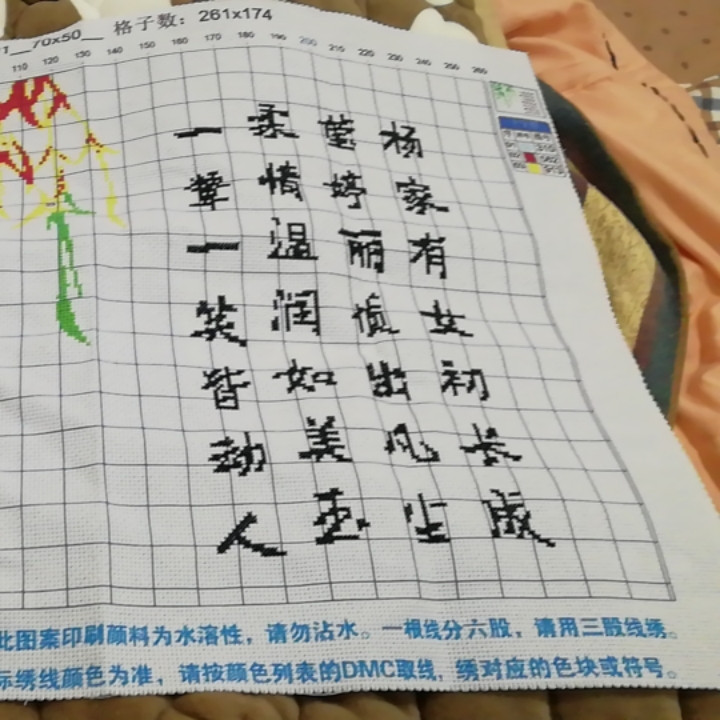 1__70x50__ 格子数：261x174
110 120 130 140 150 160 170 180 190 200 210 220 230 240 250 260
杨家有女初长成
莹婷丽质出凡尘
柔情温润如美玉
一颦一笑皆动人
此图案印刷颜料为水溶性，请勿沾水。一根线分六股，请用三股线绣。
标绣线颜色为准，请按颜色列表的DMC取线，绣对应的色块或符号。